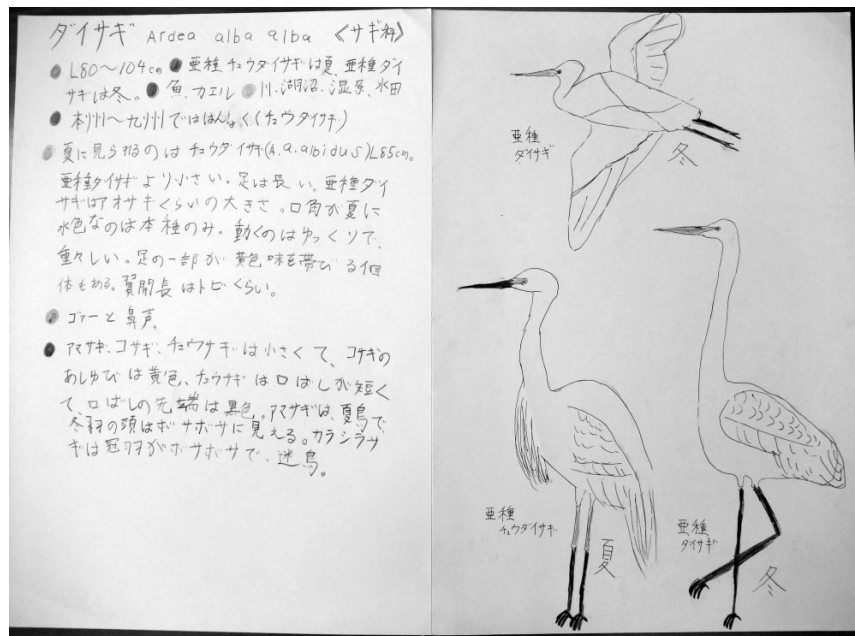 ダイサギ Ardea alba alba 《サギ科》
● L80～104cm ● 亜種チュウダイサギは夏、亜種ダイ
サギは冬。● 魚、カエル ● 川、湖沼、湿原、水田
● 本州～九州でははんしょく(チュウダイサギ)
● 夏に見られるのはチュウダイサギ(A.a.albidus)L85cm。
亜種ダイサギより小さい。足は長い。亜種ダイ
サギはアオサギくらいの大きさ。口角が夏に
水色なのは本種のみ。動くのはゆっくりで、
重々しい。足の一部が黄色味を帯びる個
体もある。翼開長はトビくらい。
● ゴァーと鼻声。
● アマサギ、コサギ、チュウサギは小さくて、コサギの
あしゆびは黄色、チュウサギは口ばしが短く
て、口ばしの先端は黒色。アマサギは、夏鳥で、
冬羽の頭はボサボサに見える。カラシラサ
ギは冠羽がボサボサで、迷鳥。
亜種
ダイサギ
冬
亜種
チュウダイサギ
夏
亜種
ダイサギ
冬